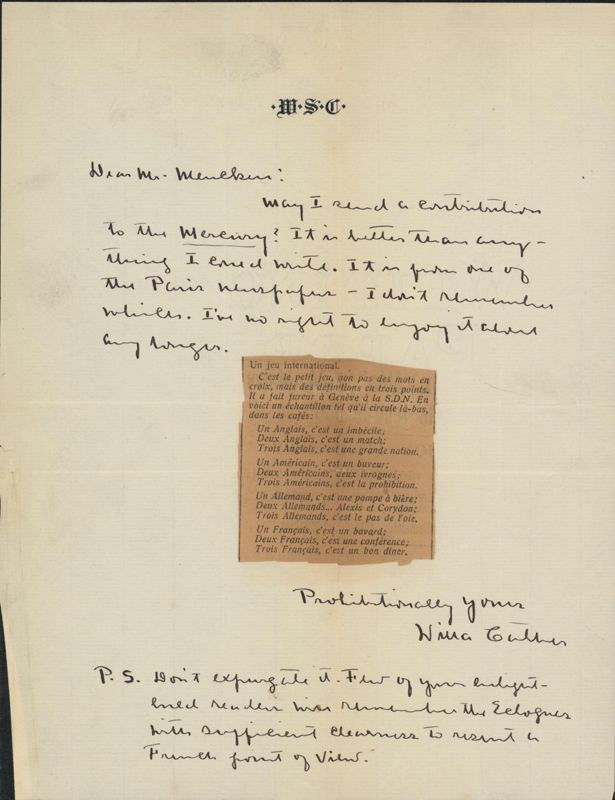 ·W·S·C·
Dear Mr. Mencken:
May I send a contribution
to the Mercury? It is better than any-
thing I could write. It is from one of
the Paris newspapers – I don't remember
which. I've no right to enjoy it alone
any longer.
Un jeu international.
C'est le petit jeu, non pas des mots en
croix, mais des définitions en trois points.
Il a fait fureur à Genève à la S.D.N. En
voici un échantillon tel qu'il circule là-bas,
dans les cafés:
Un Anglais, c'est un imbécile;
Deux Anglais, c'est un match;
Trois Anglais, c'est une grande nation.
Un Américain, c'est un buveur;
Deux Américains, deux ivrognes;
Trois Américains, c'est la prohibition.
Un Allemand, c'est une pompe à bière;
Deux Allemands... Alexis et Corydon;
Trois Allemands, c'est le pas de l'oie.
Un Français, c'est un bavard;
Deux Français, c'est une conférence;
Trois Français, c'est un bon dîner.
Prohibitionally yours
Willa Cather
P. S. Don't expurgate it. Few of your enlight-
ened readers will remember the Eclogues
with sufficient clearness to resent a
French point of view.